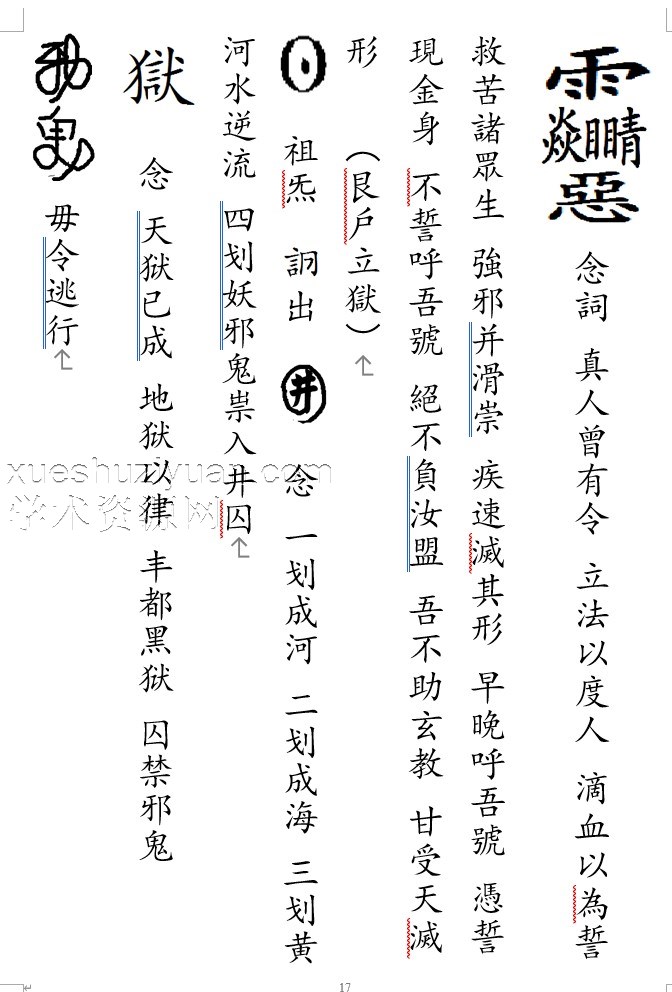 念詞 真人曾有令 立法以度人 滴血以為誓
救苦諸眾生 強邪并滑祟 疾速滅其形 早晚呼吾號 憑誓
現金身 不誓呼吾號 絕不負汝盟 吾不助玄教 甘受天滅
形 （艮戶立獄）
祖炁 詗出 井 念 一划成河 二划成海 三划黄
河水逆流 四划妖邪鬼祟入井囚
獄 念 天獄已成 地獄以律 丰都黑獄 囚禁邪鬼
毋令逃行
xueshuziyuan.com
学术资源网
17